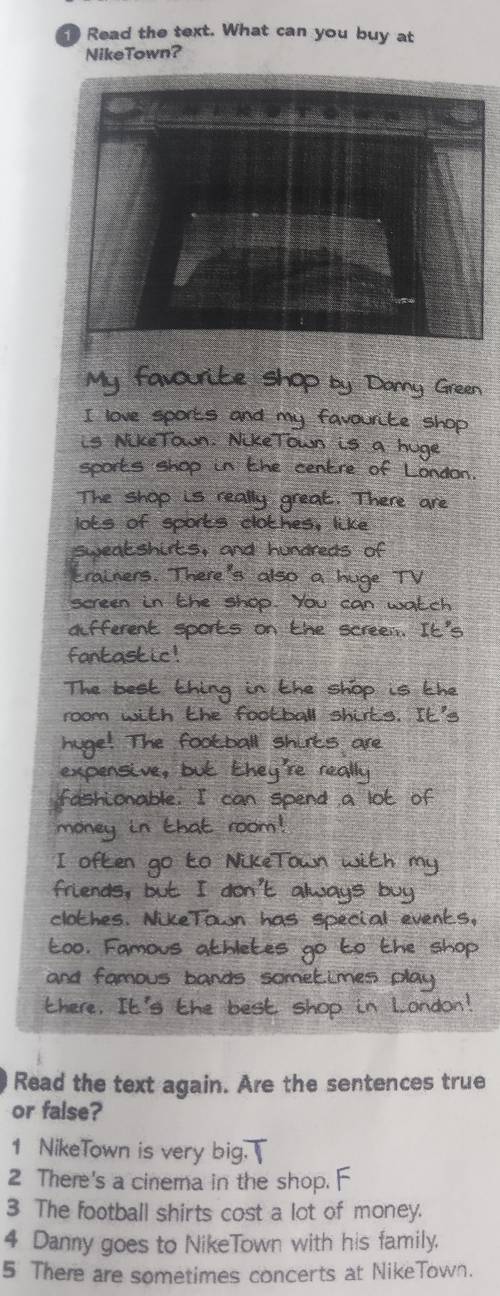 1 Read the text. What can you buy at
NikeTown?
NIKETOWN
My favourite shop by Danny Green
I love sports and my favourite shop
is NikeTown. NikeTown is a huge
sports shop in the centre of London.
The shop is really great. There are
lots of sports clothes, like
sweatshirts, and hundreds of
trainers. There's also a huge TV
screen in the shop. You can watch
different sports on the screen. It's
fantastic!
The best thing in the shop is the
room with the football shirts. It's
huge! The football shirts are
expensive, but they're really
fashionable. I can spend a lot of
money in that room!
I often go to NikeTown with my
friends, but I don't always buy
clothes. NikeTown has special events,
too. Famous athletes go to the shop
and famous bands sometimes play
there. It's the best shop in London!
Read the text again. Are the sentences true
or false?
1 NikeTown is very big. T
2 There's a cinema in the shop. F
3 The football shirts cost a lot of money.
4 Danny goes to NikeTown with his family.
5 There are sometimes concerts at NikeTown.